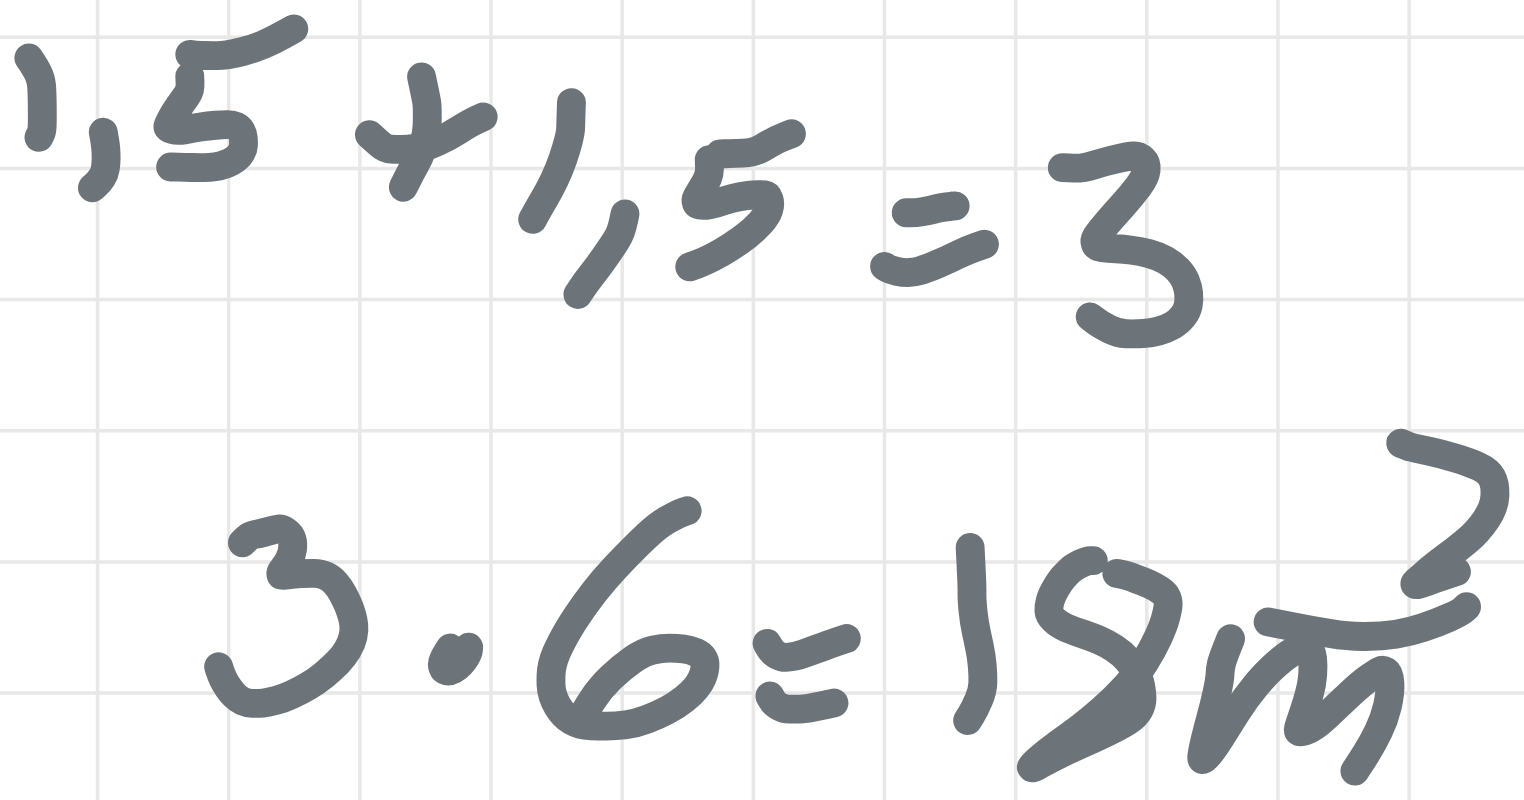 1,5 + 1,5 = 3
3 · 6 = 18 m²